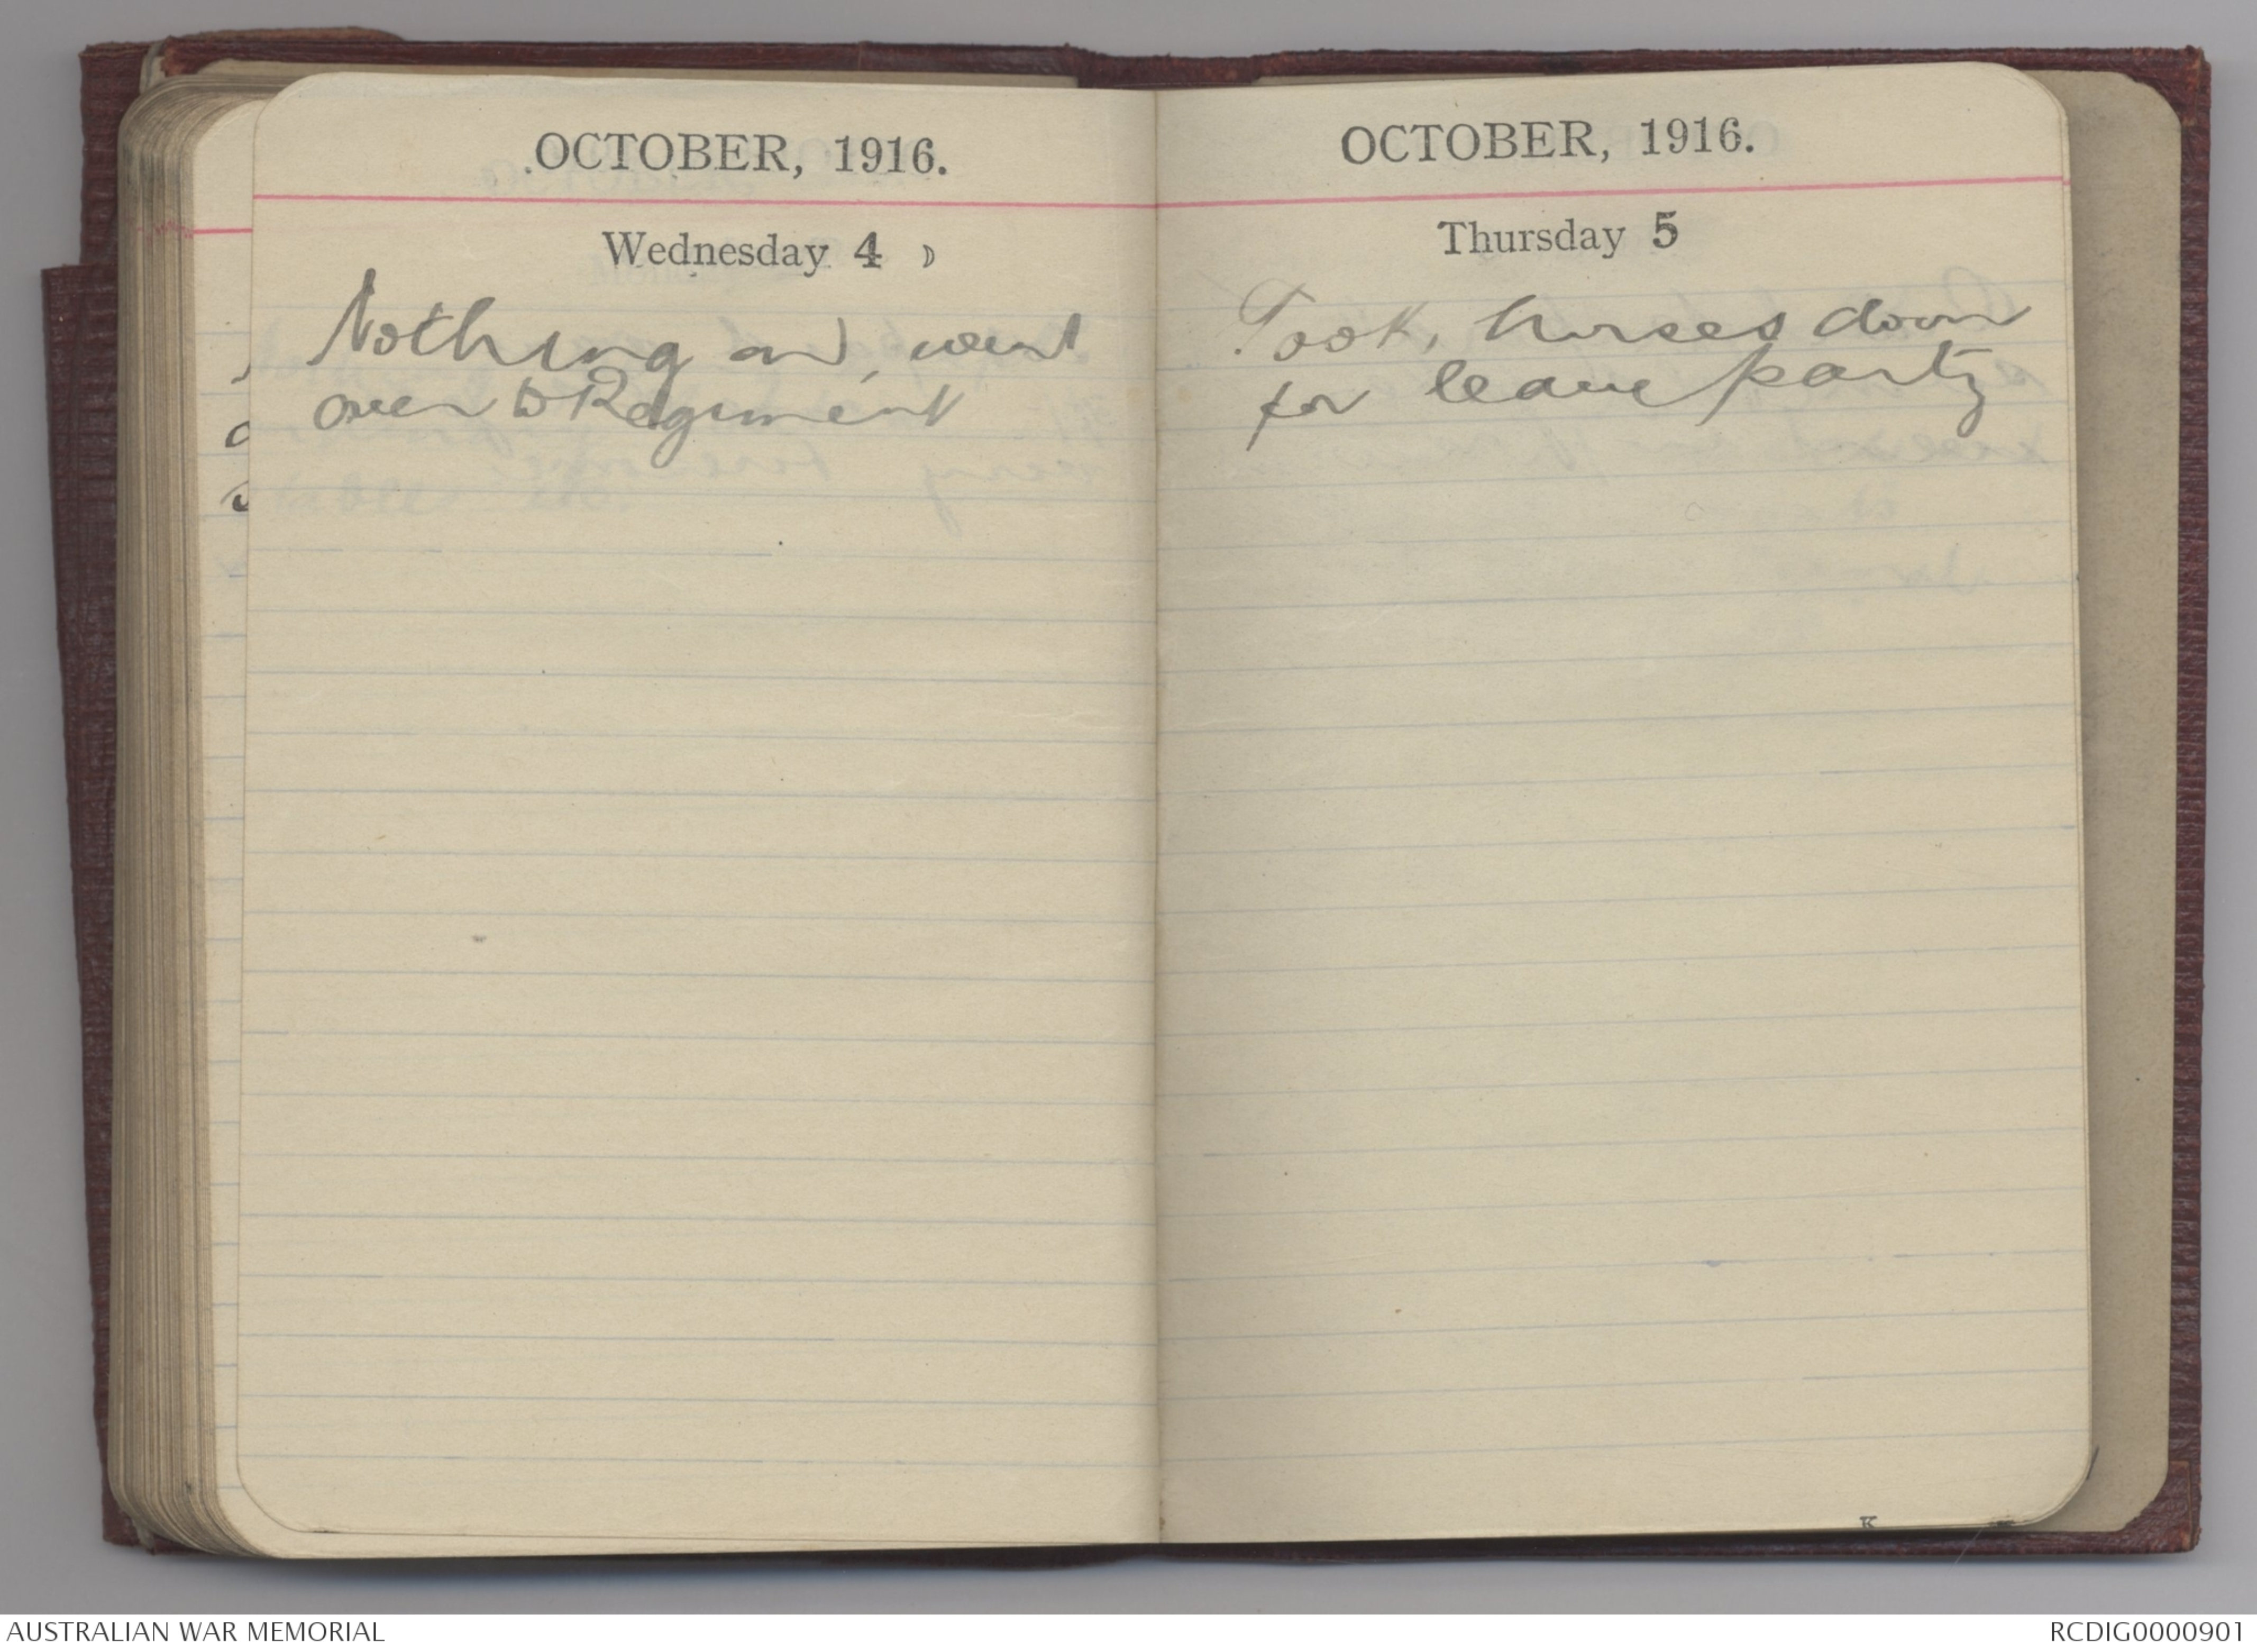 OCTOBER, 1916.
Wednesday 4
Nothing on, went
over to Regiment
OCTOBER, 1916.
Thursday 5
Took, horses down
for leave party
K
AUSTRALIAN WAR MEMORIAL
RCDIG0000901